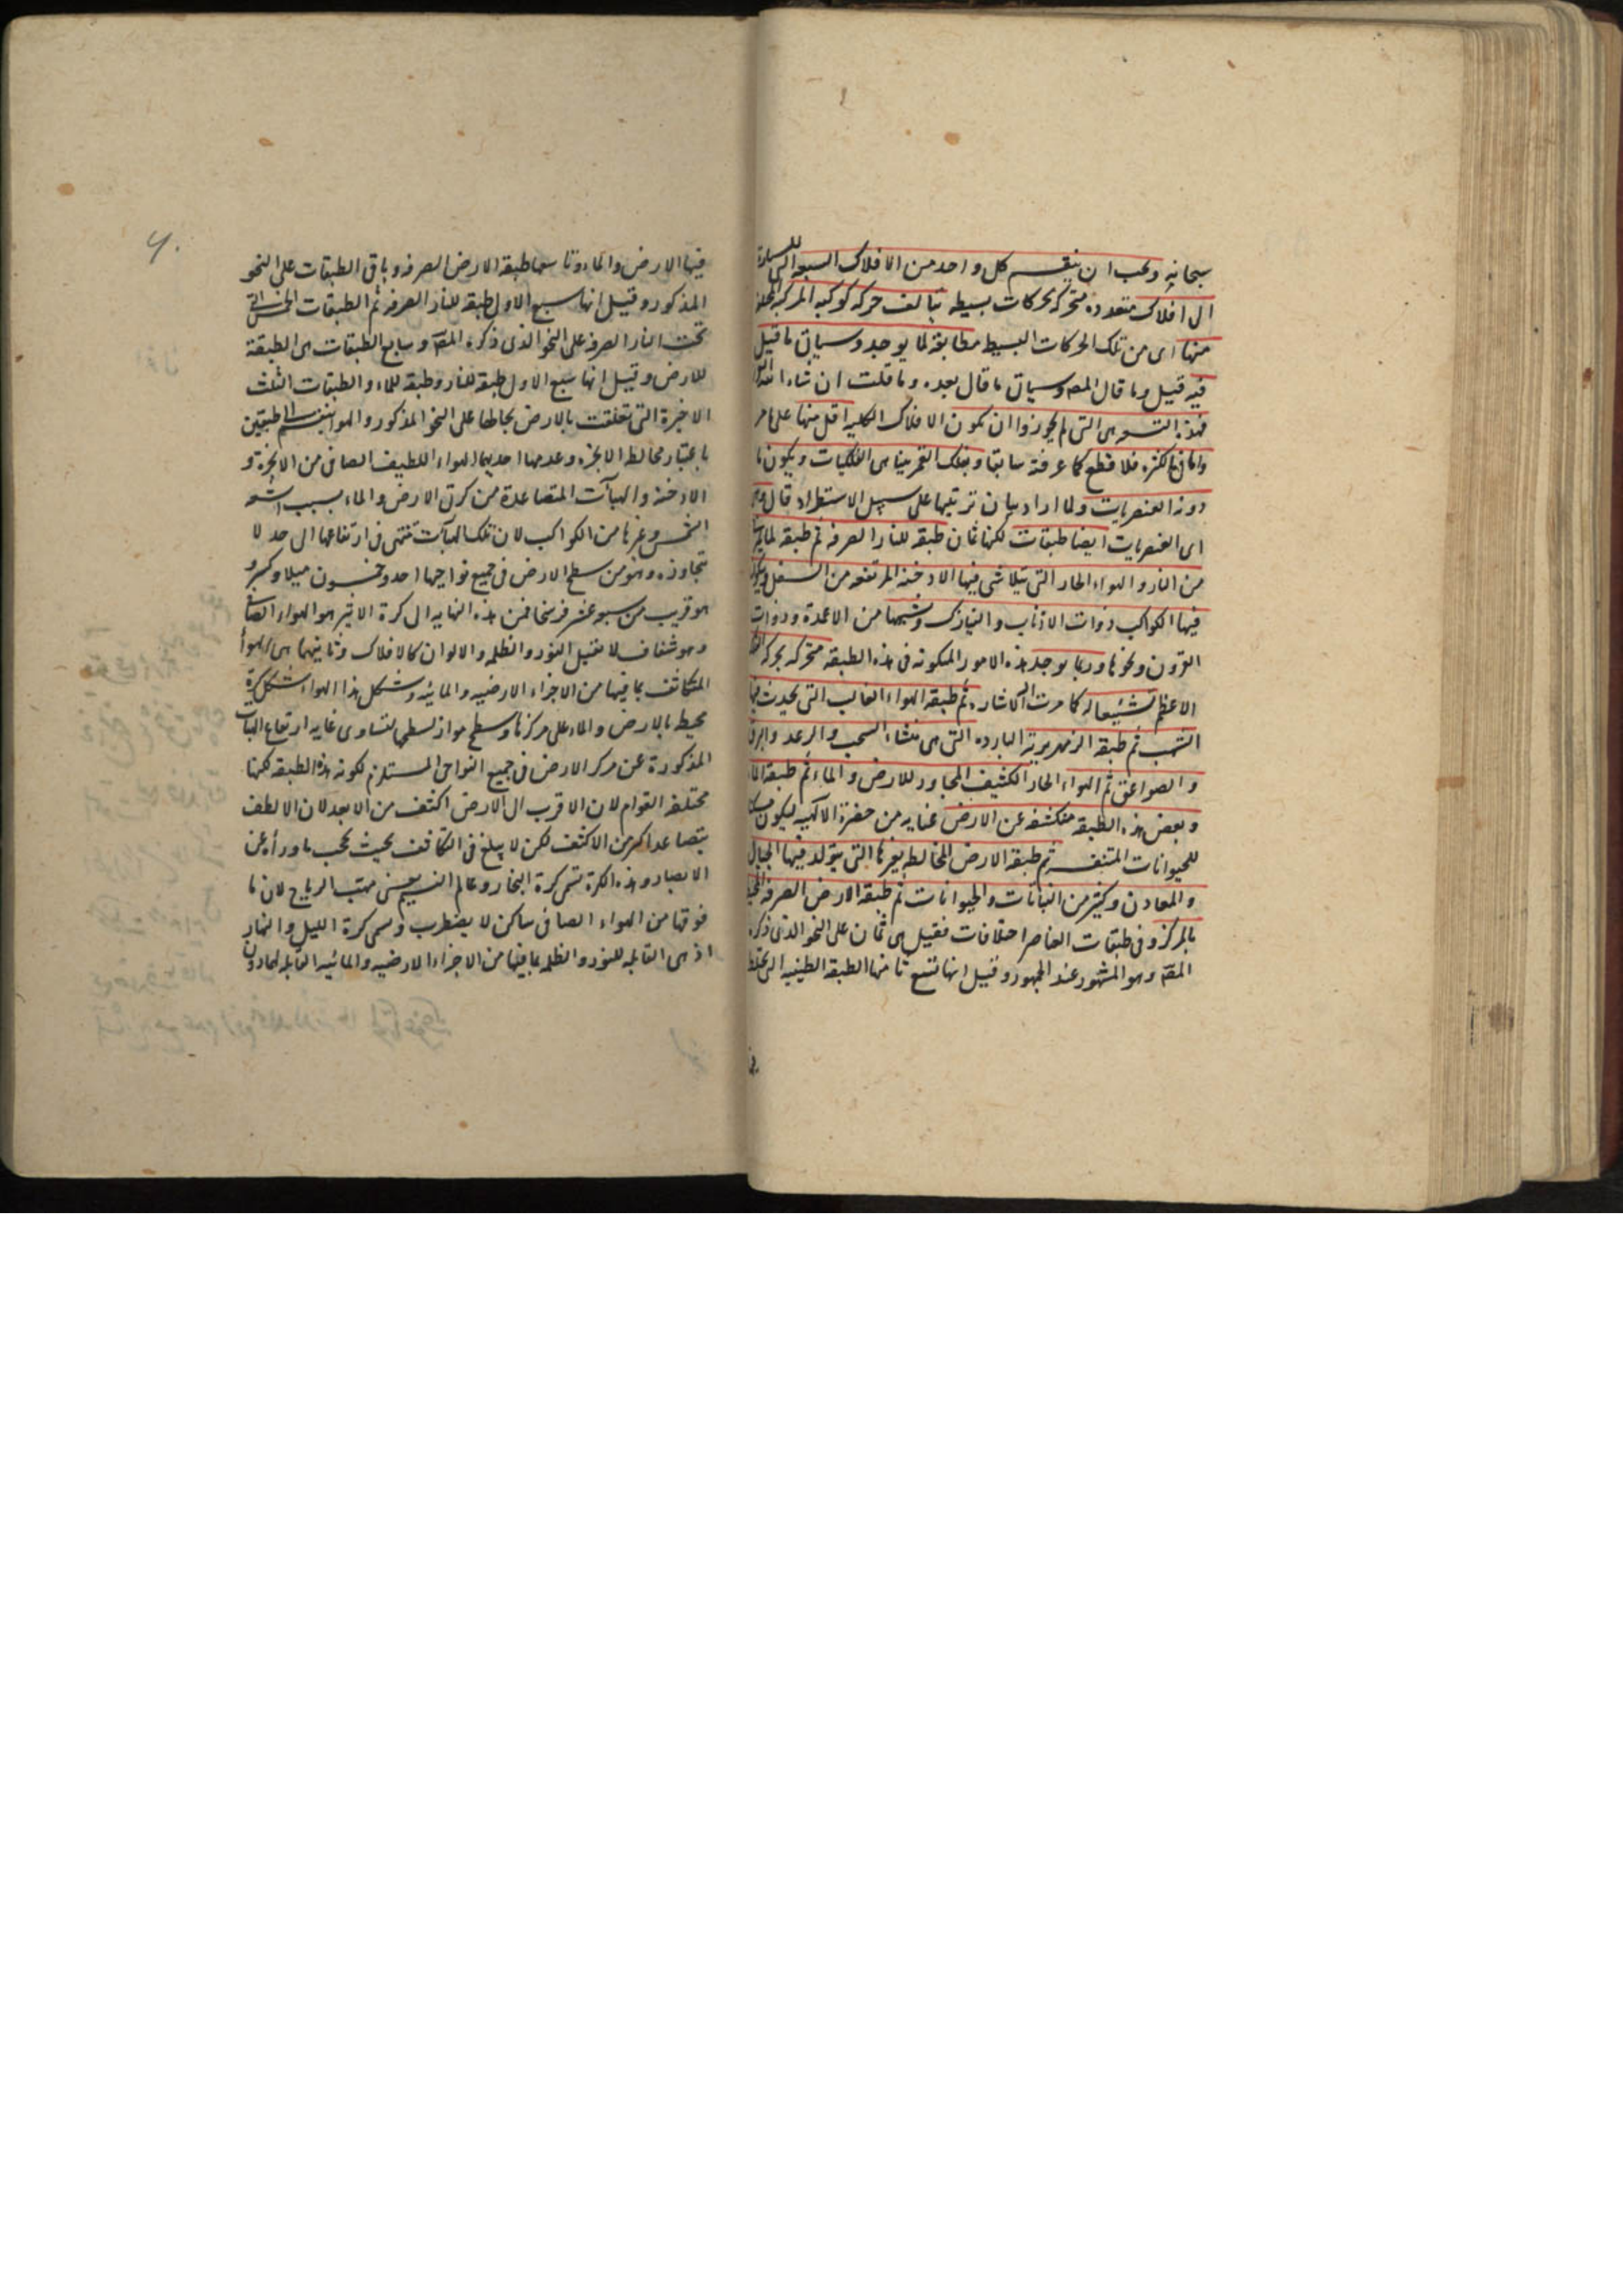 سبحانه ويجب ان ينقسم كل واحد من الافلاك السبعه التى للسيارة
الى افلاك متعدده متحركه بحركات بسيطه يتالف حركه كوكبه المركبه
منها اى من تلك الحركات البسيط مطابقة لما يوجد وسياتى ما قيل
فيه قيل وما قال المصـ وسياتى ما قال بعده وما قلت ان شاء الله
فهذه التسعه هى التى لم يجوزوا ان تكون الافلاك الكليه اقل منها على ما مر
واما فى الكثره فلا قطع كما عرفته سابقا و هى الفلكيات ويكون ما
دونه العنصريات ولما اراد بيان ترتيبها على سبيل الاستطراد قال وهى
اى العنصريات ايضا طبقات لكنها ثمان طبقه للنار الصرفه ثم طبقه لما يمتزج
من النار والهواء الحار التى يتلاشى فيها الادخنه المرتفعه من السفل ويتكون
فيها الكواكب ذوات الاذناب والنيازك وشبهها من الاعمدة وذوات
القرون ونحوها وربما يوجد هذه الامور المتكونه فى هذه الطبقه متحركه بحركه الفلك
الاعظم تشييعا له كما مرت اليه الاشاره ثم طبقه الهواء الغالب التى يحدث فيها
الشهب ثم طبقه الزمهريريه البارده التى هى منشاء السحب والرعد والبرق
والصواعق ثم الهواء الحار الكثيف المجاور للارض والماء ثم طبقه الماء
وبعض هذه الطبقه منكشفه عن الارض عنايه من حضرة الالهيه ليكون مسكنا
للحيوانات المتنفسه ثم طبقة الارض المخالطه بغيرها التى يتولد فيها الجبال
والمعادن وكثير من النباتات والحيوانات ثم طبقه الارض الصرفه المحيطه
بالمركز وفى طبقات العناصر اختلافات فقيل هى ثمان على النحو الذى ذكره
المصـ وهو المشهور عند الجمهور وقيل انها تسع ثامنها الطبقه الطينيه التى يختلط
فيها الارض والماء وتاسعها طبقه الارض الصرفه وباقى الطبقات على النحو
المذكور وقيل انها سبع الاول طبقه للنار الصرفه ثم الطبقات الخمس التى
تحت النار الصرفه على النحو الذى ذكره المصـ وسابع الطبقات هى الطبقة
للارض وقيل انها سبع الاول طبقه للنار وطبقه للماء والطبقات الثلث
الاخيرة التى تعلقت بالارض بحالها على النحو المذكور والهواء ينقسم الى طبقتين
باعتبار مخالطه الابخره وعدمها احديهما الهواء اللطيف الصافى من الابخرة و
الادخنه والهبآت المتصاعدة من كرتى الارض والماء بسبب اشعه
الشمس وغيرها من الكواكب لان تلك الهبآت تنتهى فى ارتفاعها الى حد لا
تتجاوزه وهو من سطح الارض فى جميع نواحيها احد وخمسون ميلا وكسر و
هو قريب من سبعه عشر فرسخا فمن هذه النهايه الى كرة الاثير هو الهواء الصافى
وهو شفاف لا يقبل النور والظلمه والالوان كالافلاك وثانيتهما هى الهوأ
المتكاثف بما فيها من الاجزاء الارضيه والمائيه وشكل هذا الهواء شكل كرة
محيط بالارض والماء على مركزها وسطح مواز لسطحها لتساوى غايه ارتفاع الهبآت
المذكورة عن مركز الارض فى جميع النواحى المستلزم لكونه هذه الطبقه لكنها
مختلفه القوام لان الاقرب الى الارض اكثف من الابعد لان الالطف
يتصاعد اكثر من الاكثف لكن لا يبلغ فى التكاثف بحيث يحجب ما ورأه عن
الابصار وهذه الكرة تسمى كرة البخار وعالم النسيم يعنى مهب الرياح لان ما
فوقها من الهواء الصافى ساكن لا يضطرب وتسمى كرة الليل والنهار
اذ هى القابله للنور والظلمه بما فيها من الاجزاء الارضيه والمائيه القابله لهما دون